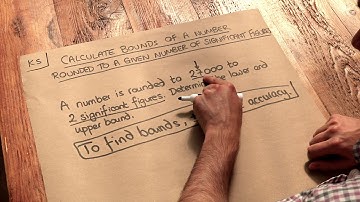 K.S
CALCULATE BOUNDS OF A NUMBER
ROUNDED TO A GIVEN NUMBER OF SIGNIFICANT FIGURES
A number is rounded to 27000 to
2 significant figures. Determine the lower and
upper bound.
To find bounds, accuracy.